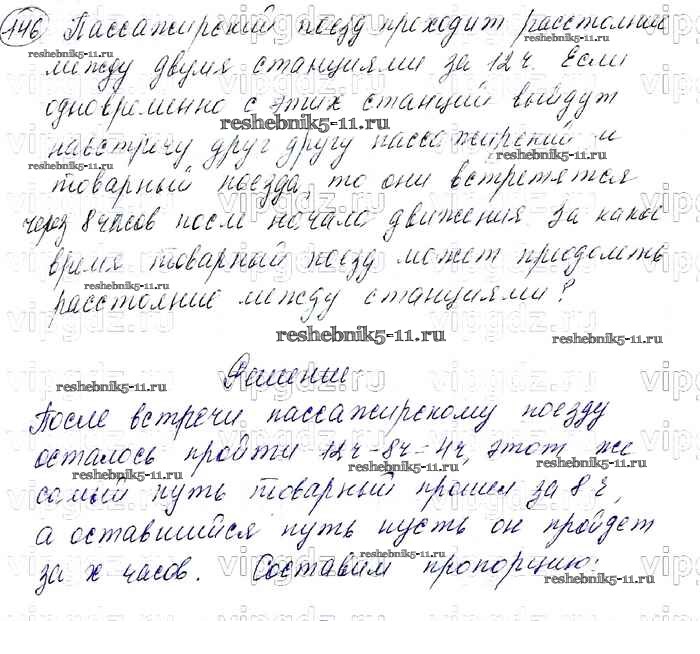 146 Пассажирский поезд проходит расстояние
между двумя станциями за 12ч. Если
одновременно с этих станций выйдут
reshebnik5-11.ru
навстречу друг другу пассажирский и
товарный поезда, то они встретятся
через 8 часов после начала движения. За какое
время товарный поезд может приодолеть
расстояние между станциями?
reshebnik5-11.ru
Решение
После встречи пассажирскому поезду
осталось пройти 12ч-8ч=4ч, этот же
самый путь товарный прошел за 8ч,
а оставшийся путь пусть он пройдет
за x часов. Составим пропорцию: